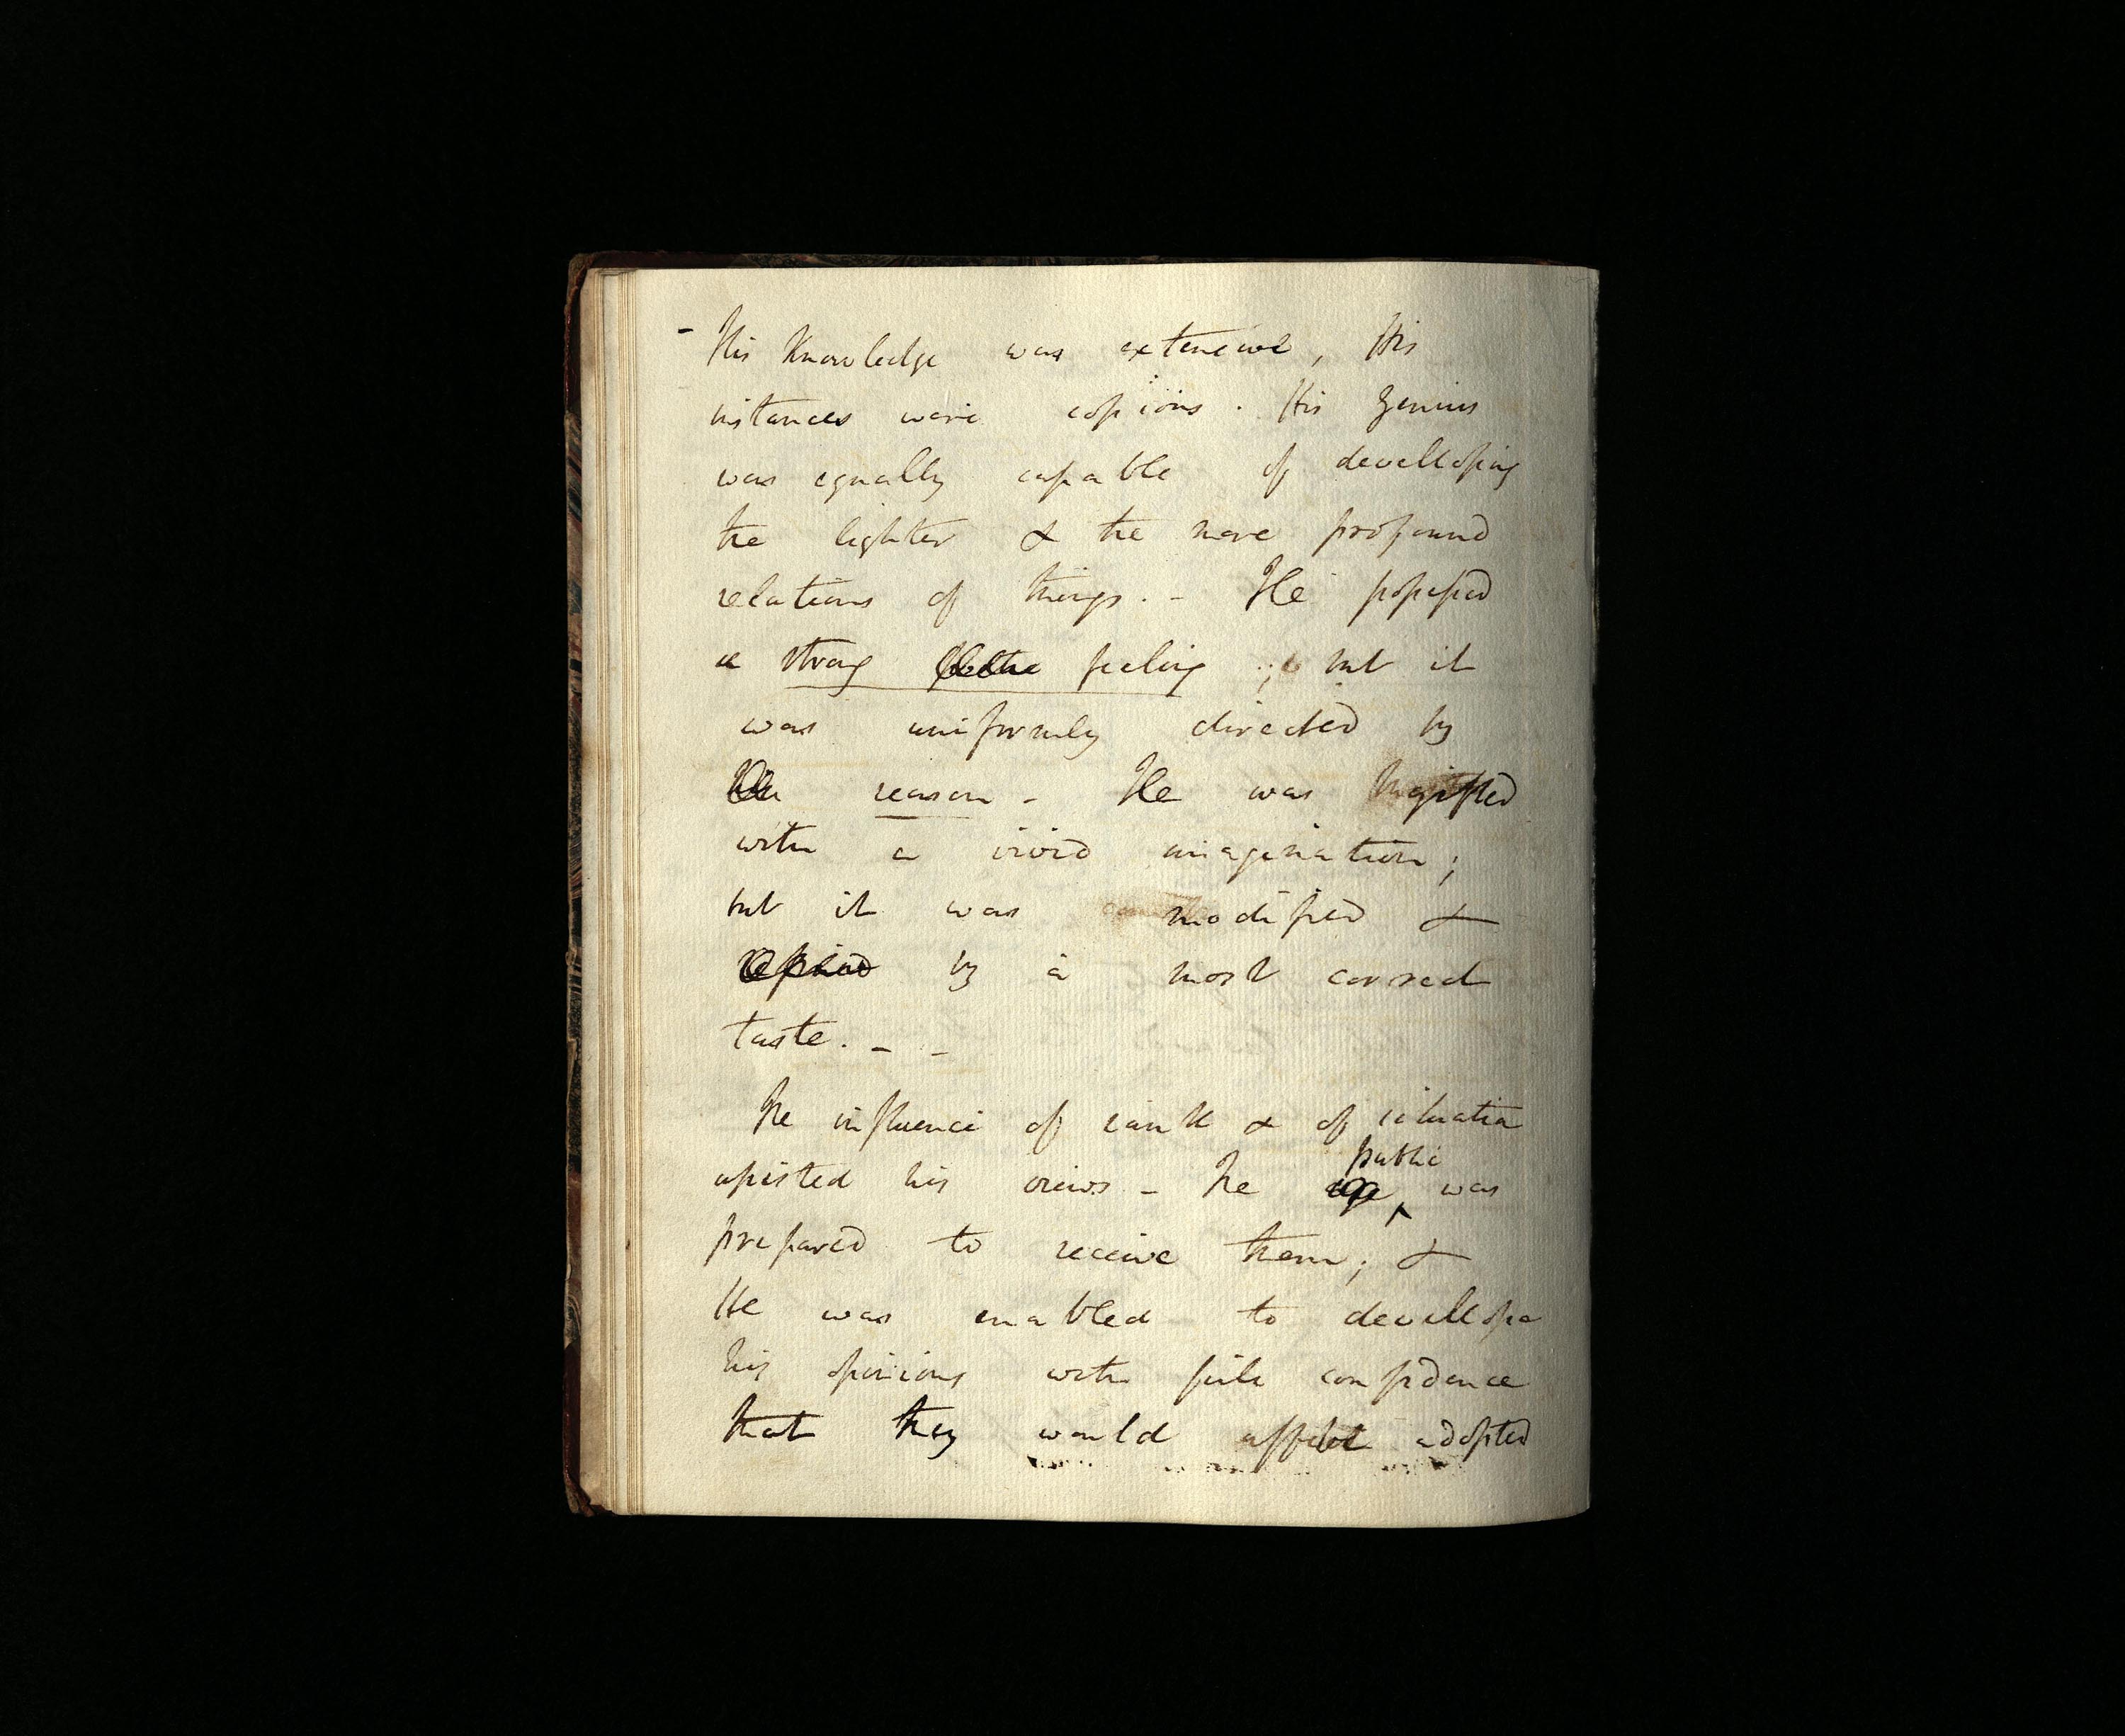 - His knowledge was extensive, His
instances were copious. His genius
was equally capable of developing
the lighter & the more profound
relations of things. - He possessed
a strong feeling; but it
was uniformly directed by
reason - He was gifted
with a vivid imagination;
but it was modified &
by a most correct
taste. - -
The influence of rank & of situation
assisted his views - The public was
prepared to receive them; &
He was enabled to develope
his opinions with full confidence
that they would adopted